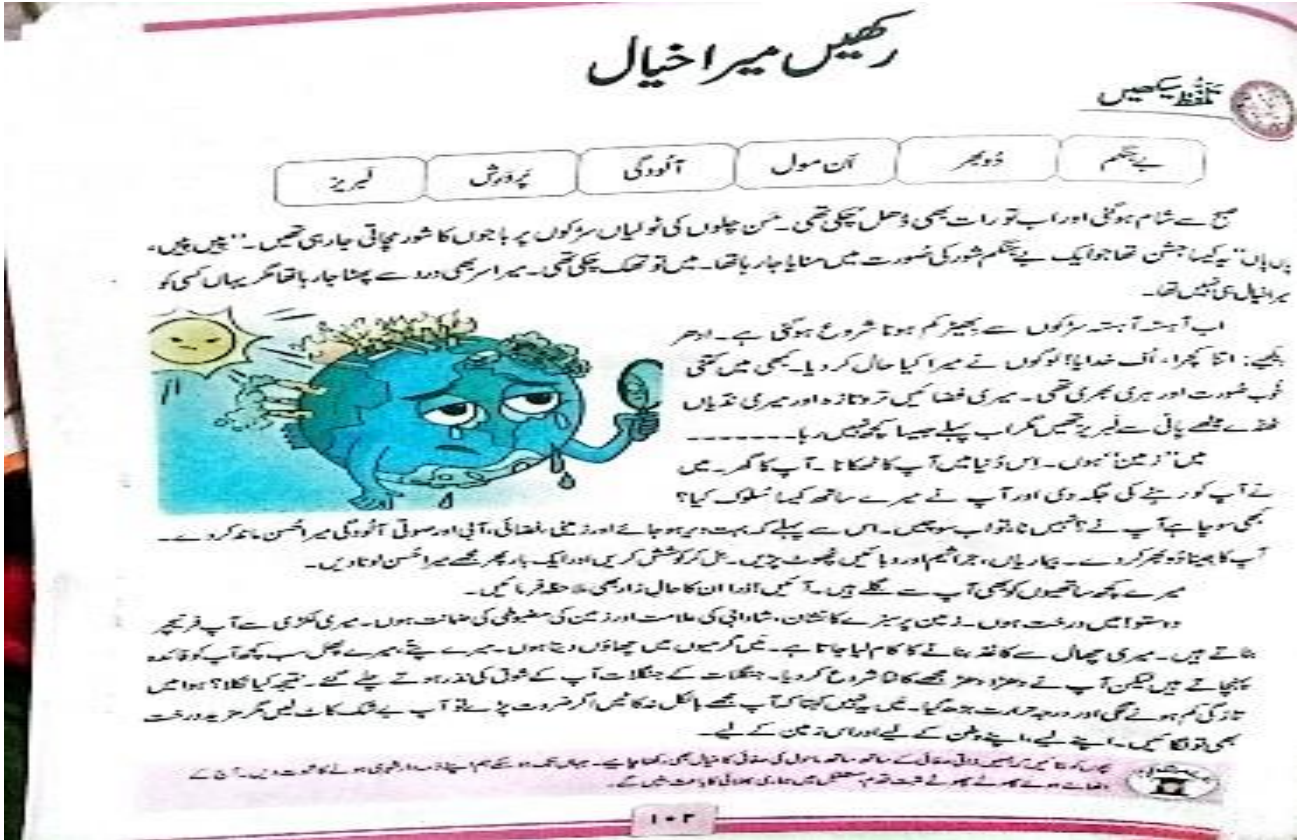 رکھیں میرا خیال
تلفظ سیکھیں
بے ہنگم دُوبھر اَن مول آلُودگی پَروَرِش لَبریز
صبح سے شام ہوگئی اور اب تو رات بھی ڈھل چکی تھی۔ مَن چلوں کی ٹولیاں سڑکوں پر باجوں کا شور مچاتی جارہی تھیں۔ ”پیں پیں،
پاں پاں“ یہ کیسا جشن تھا جو ایک بے ہنگم شور کی صُورت میں منایا جارہا تھا۔ میں تو تھک چکی تھی۔ میرا سر بھی درد سے پھٹا جارہا تھا مگر یہاں کسی کو
میرا خیال ہی نہیں تھا۔
اب آہستہ آہستہ سڑکوں سے بھیڑ کم ہونا شروع ہوگئی ہے۔ ادھر
دیکھیے: اتنا کچرا، اُف خدایا! لوگوں نے میرا کیا حال کردیا۔ کبھی میں کتنی
خُوب صُورت اور ہری بھری تھی۔ میری فضائیں تروتازہ اور میری ندیاں
ٹھنڈے میٹھے پانی سے لَبریز تھیں مگر اب پہلے جیسا کچھ نہیں رہا۔۔۔۔۔۔۔
میں ”زمین“ ہوں۔ اس دُنیا میں آپ کا ٹھکانا۔ آپ کا گھر۔ میں
نے آپ کو رہنے کی جگہ دی اور آپ نے میرے ساتھ کیسا سُلوک کیا؟
کبھی سوچا ہے آپ نے؟ نہیں نا، تو اب سوچیں۔ اس سے پہلے کہ بہت دیر ہوجائے اور زمینی، فضائی، آبی اور صوتی آلُودگی میرا حُسن ماند کردے۔
آپ کا جینا دُوبھر کردے۔ بیماریاں، جراثیم اور وبائیں پُھوٹ پڑیں۔ مل کر کوشش کریں اور ایک بار پھر مجھے میرا حُسن لوٹا دیں۔
میرے کچھ ساتھیوں کو بھی آپ سے گلے ہیں۔ آئیں! ذرا ان کا حالِ زار بھی ملاحظہ فرمائیں۔
دوستو! میں درخت ہوں۔ زمین پر سبزے کا نشان، شادابی کی علامت اور زمین کی مضبوطی کی ضمانت ہوں۔ میری لکڑی سے آپ فرنیچر
بناتے ہیں۔ میری چھال سے کاغذ بنانے کا کام لیا جاتا ہے۔ مَیں گرمیوں میں چھاؤں دیتا ہوں۔ میرے پتّے، میرے پھل سب کچھ آپ کو فائدہ
پہنچاتے ہیں لیکن آپ نے دھڑا دھڑ مجھے کاٹنا شروع کردیا۔ جنگلات کے جنگلات آپ کے شوق کی نذر ہوتے چلے گئے۔ نتیجہ کیا نکلا؟ ہوا میں
تازگی کم ہونے لگی اور درجہ حرارت بڑھ گیا۔ مَیں یہ نہیں کہتا کہ آپ مجھے بالکل نہ کاٹیں اگر ضرورت پڑے تو آپ بے شک کاٹ لیں مگر مزید درخت
بھی تو لگائیں۔ اپنے لیے، اپنے وطن کے لیے اور اس زمین کے لیے۔
بچوں کو بتائیں کہ ہمیں ذاتی صفائی کے ساتھ ساتھ ماحول کی صفائی کا خیال بھی رکھنا چاہیے۔ جہاں تک ہو سکے ہم اپنے ذمہ دار شہری ہونے کا ثبوت دیں۔ آج کے
اٹھائے ہوئے چھوٹے چھوٹے مثبت قدم مستقبل میں ہماری بھلائی کا باعث بنیں گے۔
۱۰۲